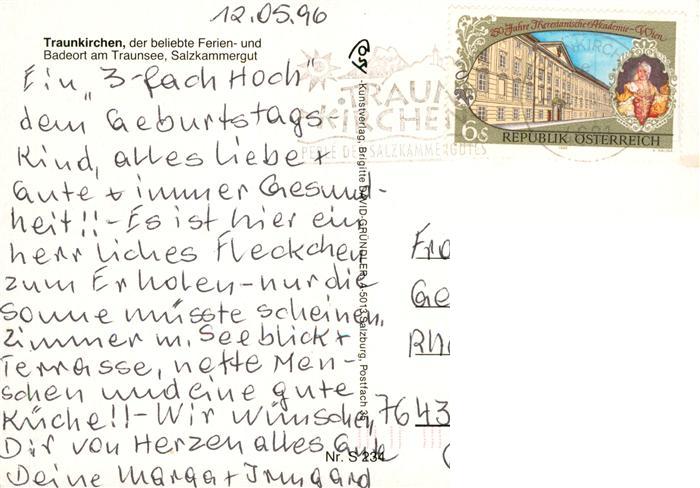 12.05.96
Traunkirchen, der beliebte Ferien- und
Badeort am Traunsee, Salzkammergut
Ein „3-fach Hoch"
dem Geburtstags-
Kind, alles liebe +
Gute + immer Gesund-
heit!! - Es ist hier ein
herrliches Fleckchen
zum Erholen - nur die
Sonne müsste scheinen.
Zimmer m. Seeblick +
Terrasse, nette Men-
schen und eine gute
Küche!! - Wir wünschen
Dir von Herzen alles Gute
Deine Marga + Irmgard
Cosy - Kunstverlag, Brigitte DAVID-GRÜNDLER, A-5013 Salzburg, Postfach 35
Nr. S 234
TRAUN
KIRCHEN
PERLE DES SALZKAMMERGUTES
250 Jahre Theresianische Akademie-Wien
6s REPUBLIK ÖSTERREICH
Fra
Ge
Rh
7643